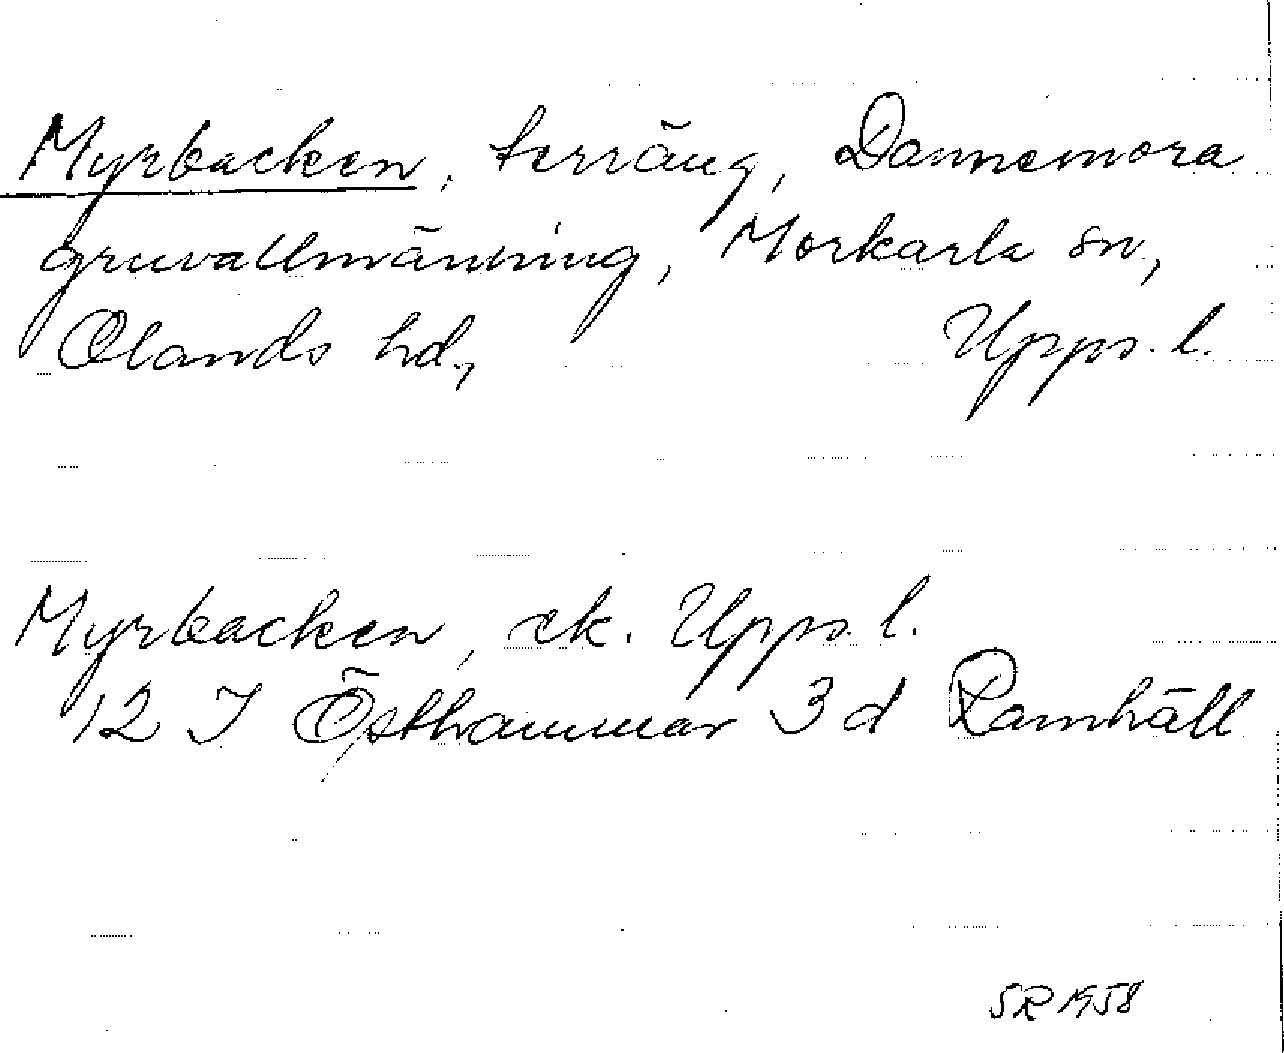 Myrbacken, terräng, Dannemora
gruvallmänning, Morkarla sn,
Olands hd., Upps. l.
Myrbacken, ek. Upps. l.
12 I Östhammar 3 d Ramhäll
SR 1958